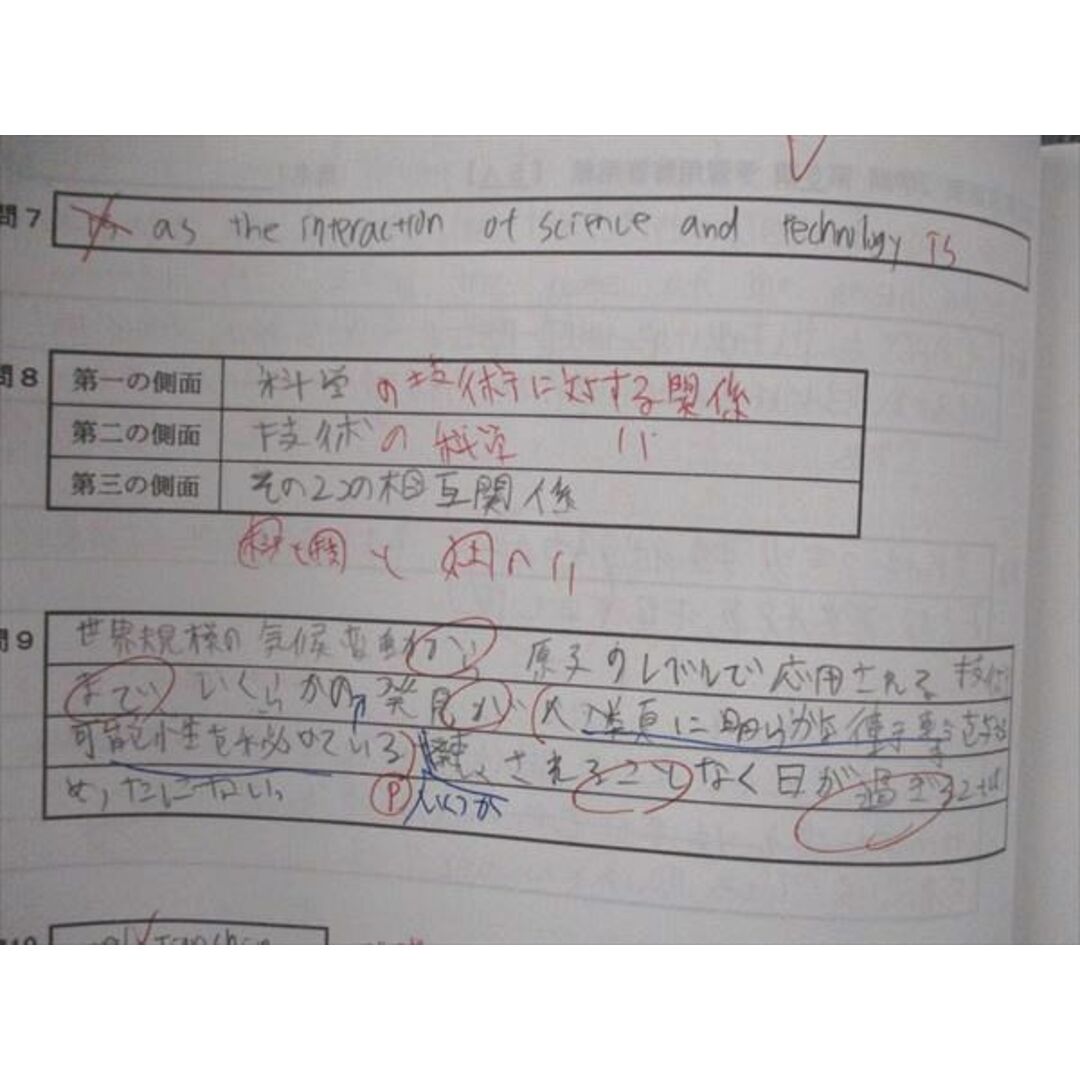 問7 as the interaction of science and technology is
問8 第一の側面 科学の技術に対する関係
第二の側面 技術の科学 〃
第三の側面 その2つの相互関係
問9 世界規模の気候変動から 原子のレベルで応用される技術
まで いくらかの発見が 人類に明らかな を与える
可能性を秘めている されることなく日が過ぎることは
めったにない。
P いくつか